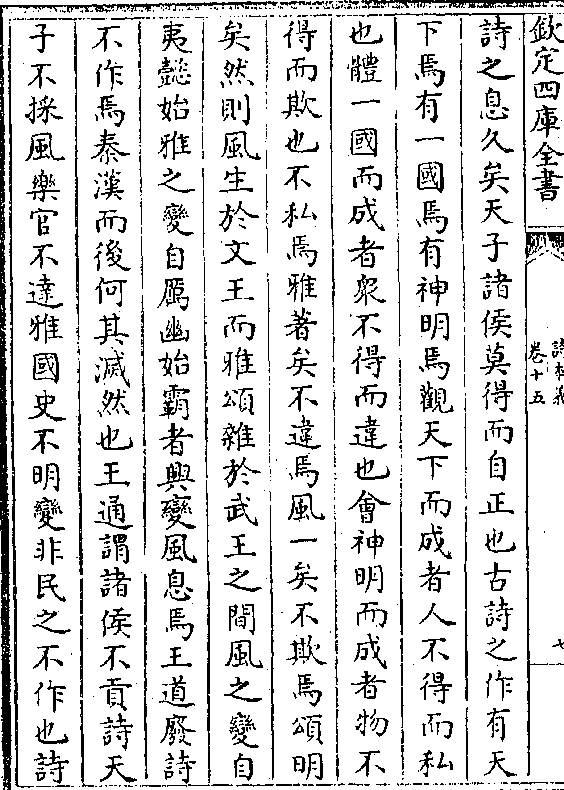 欽定四庫全書
卷十五
詩之息久矣天子諸侯莫得而自正也古詩之作有天
下焉有一國焉有神明焉觀天下而成者人不得而私
也體一國而成者衆不得而違也會神明而成者物不
得而欺也不私焉雅著矣不違焉風一矣不欺焉頌明
矣然則風生於文王而雅頌雜於武王之間風之變自
夷懿始雅之變自厲幽始霸者興變風息焉王道廢詩
不作焉秦漢而後何其滅然也王通謂諸侯不貢詩天
子不採風樂官不達雅國史不明變非民之不作也詩